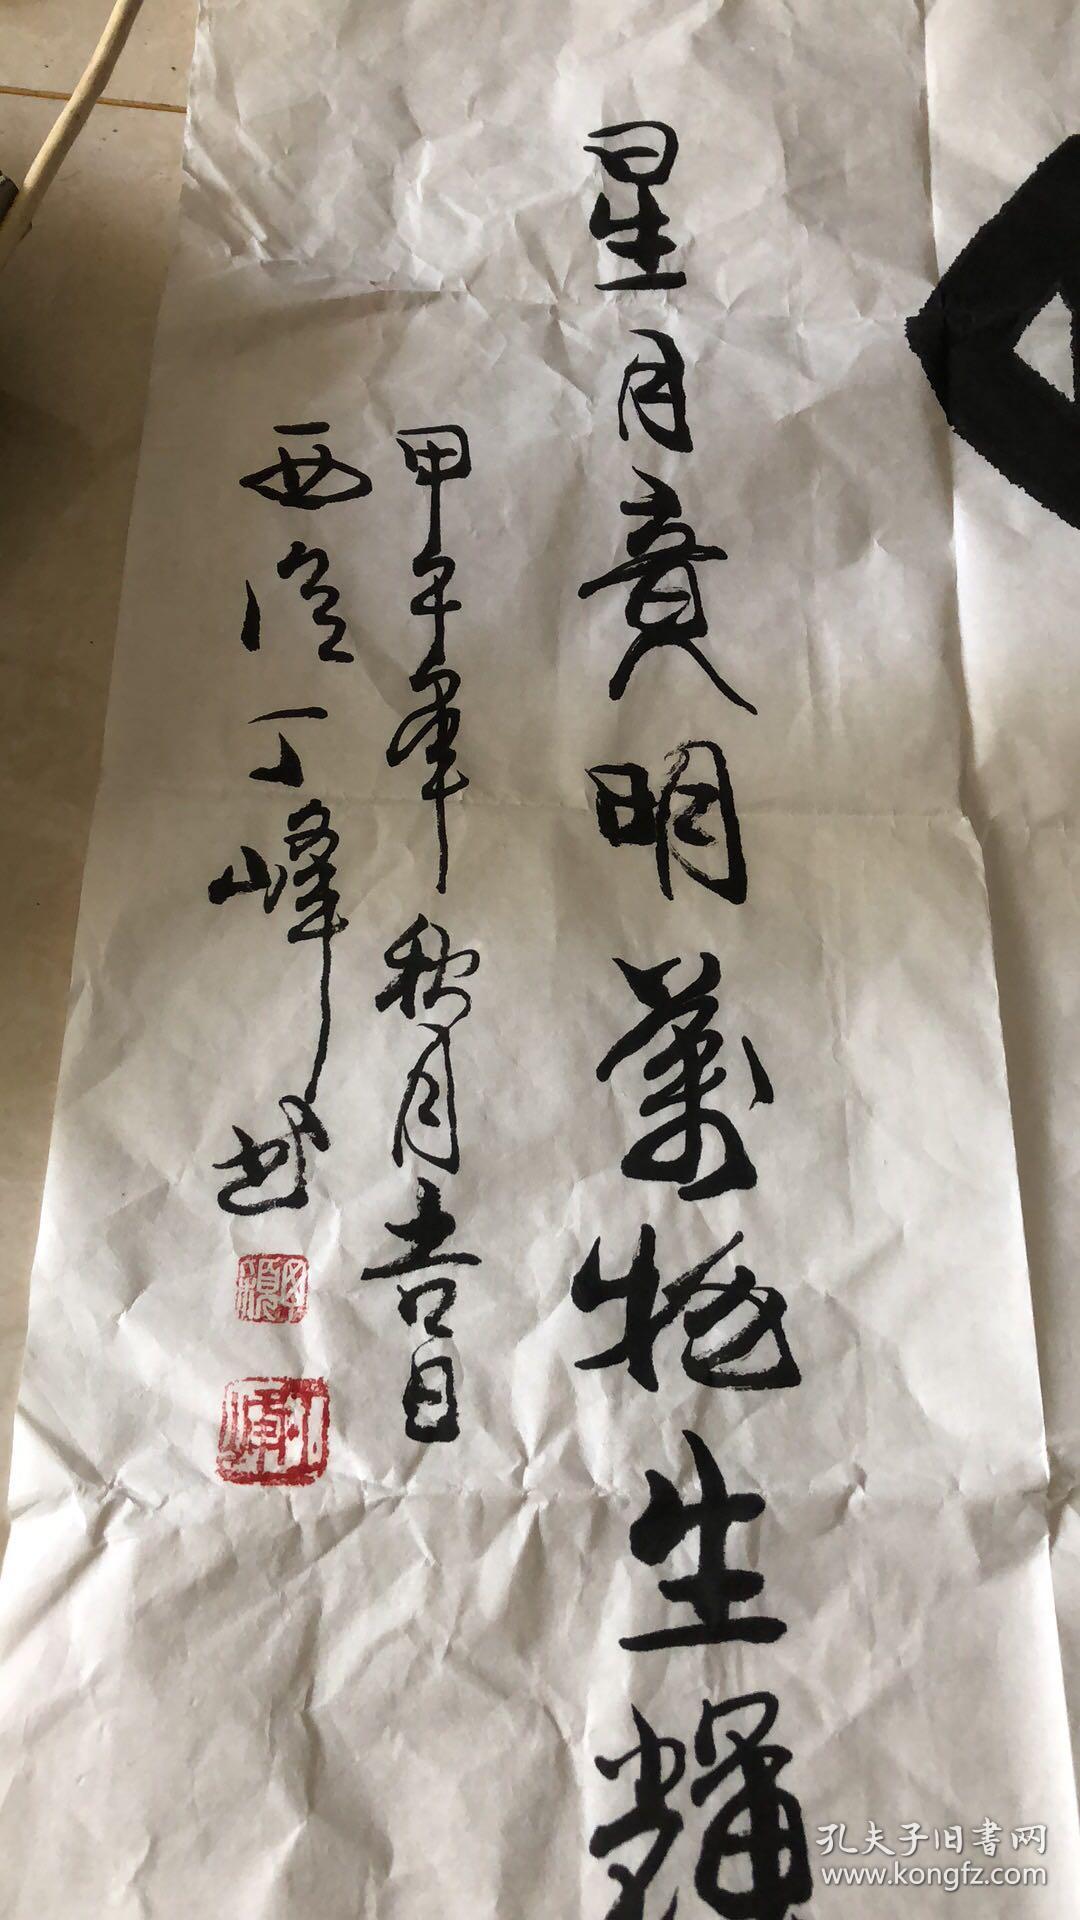 星月贲明万物生辉
甲午年秋月吉日
西泠丁峰书
孔夫子旧書网
www.kongfz.com